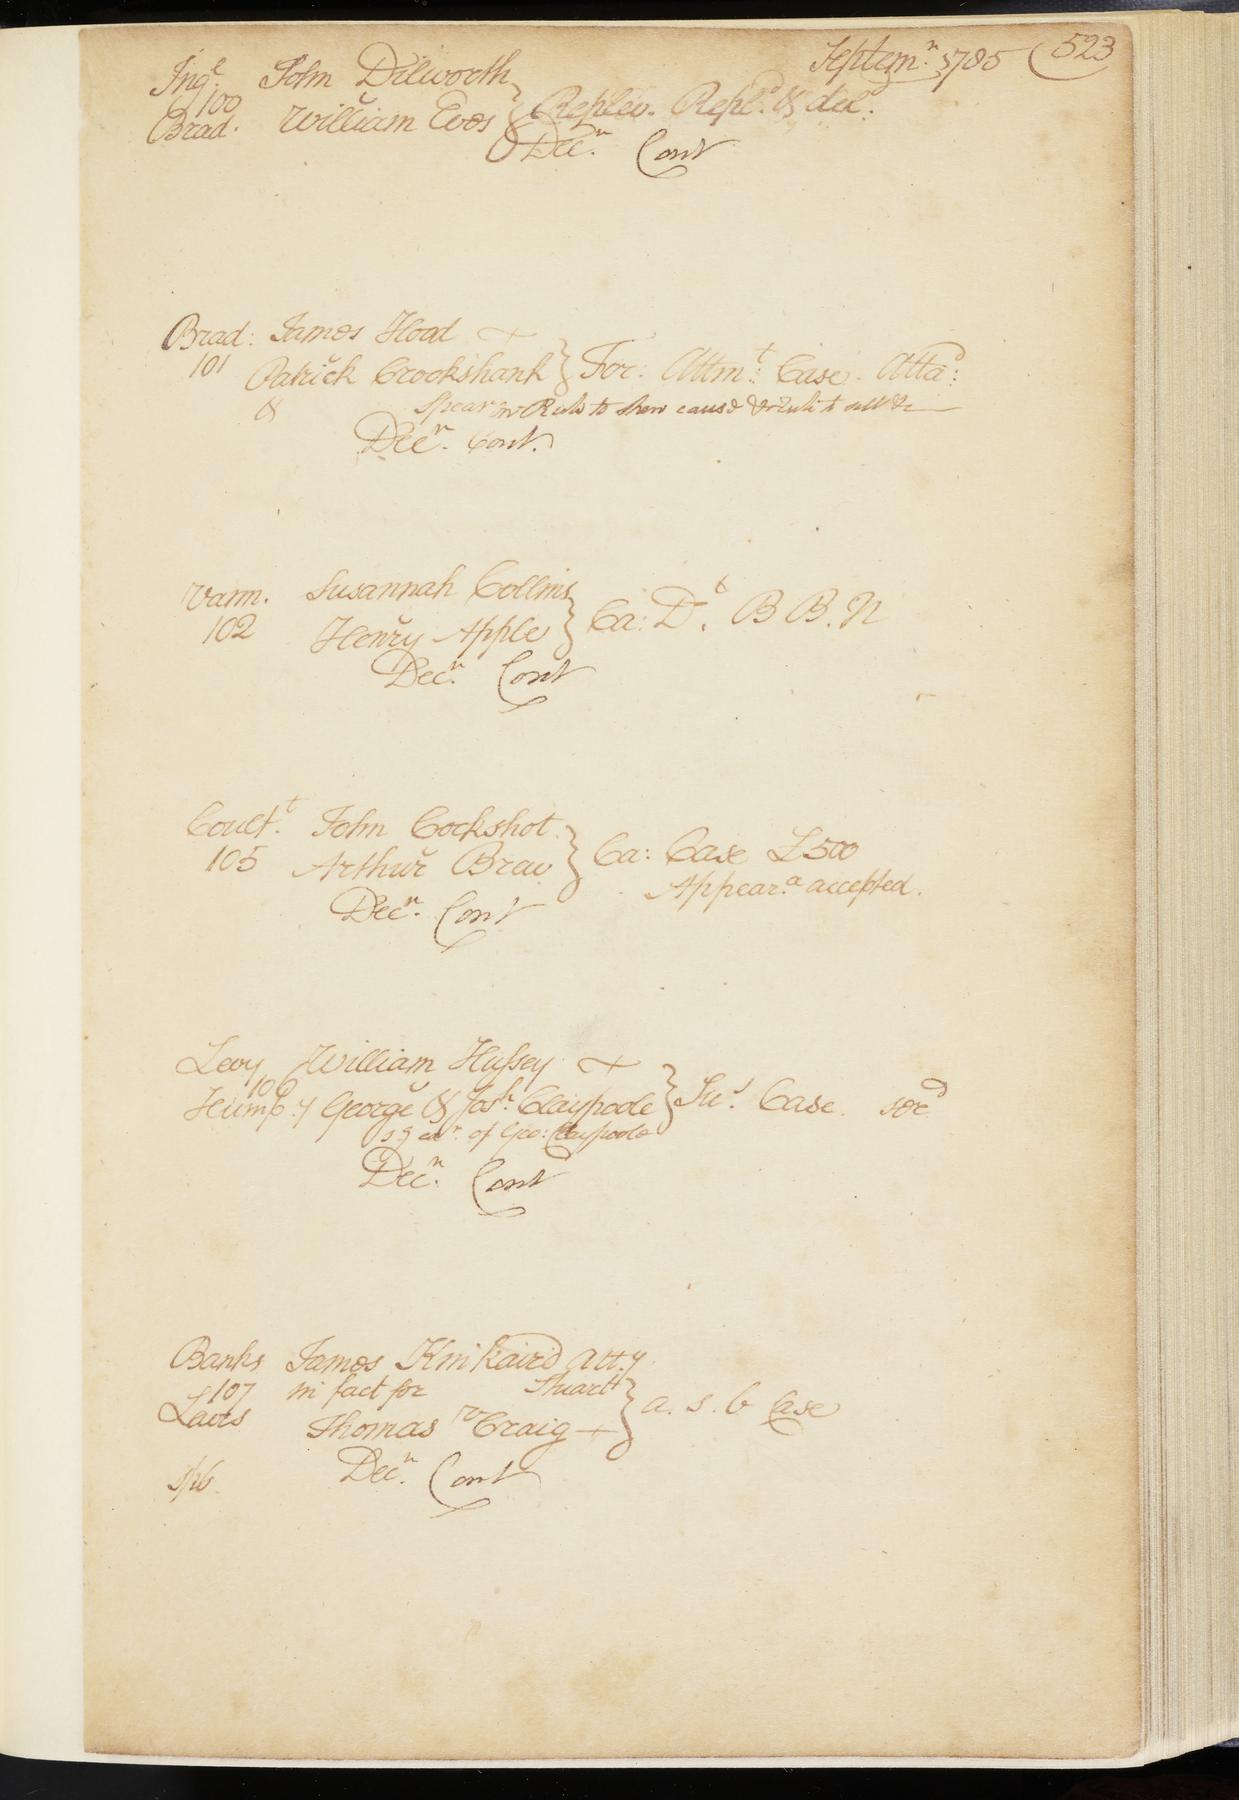 Septem.r 1785 523
Ing.l John Dilworth
100
Brad. William Eves } Replev. Repl.d & del.d
Dec.r Cont
Brad: James Hood
101 Patrick Crookshank } For: Attm.t Case. Atta.d:
& Spear on Rule to shew cause
Dec.r Cont.
Vann. Susannah Collins
102 Henry Apple } Ca: D.t B B. N
Dec.r Cont
Coult.t John Cockshot
105 Arthur Brau } Ca: Case £500
Appear.a accepted.
Dec.r Cont
Levy William Hussey
106
Hump.y George & Jos.h Claypoole } Su.s Case. ser.d
of Geo: Claypoole
Dec.r Cont
Banks James Kinkaird Att.y
107 in fact for Stuart
Laws Thomas Craig } a. s. b Case
Dec.r Cont